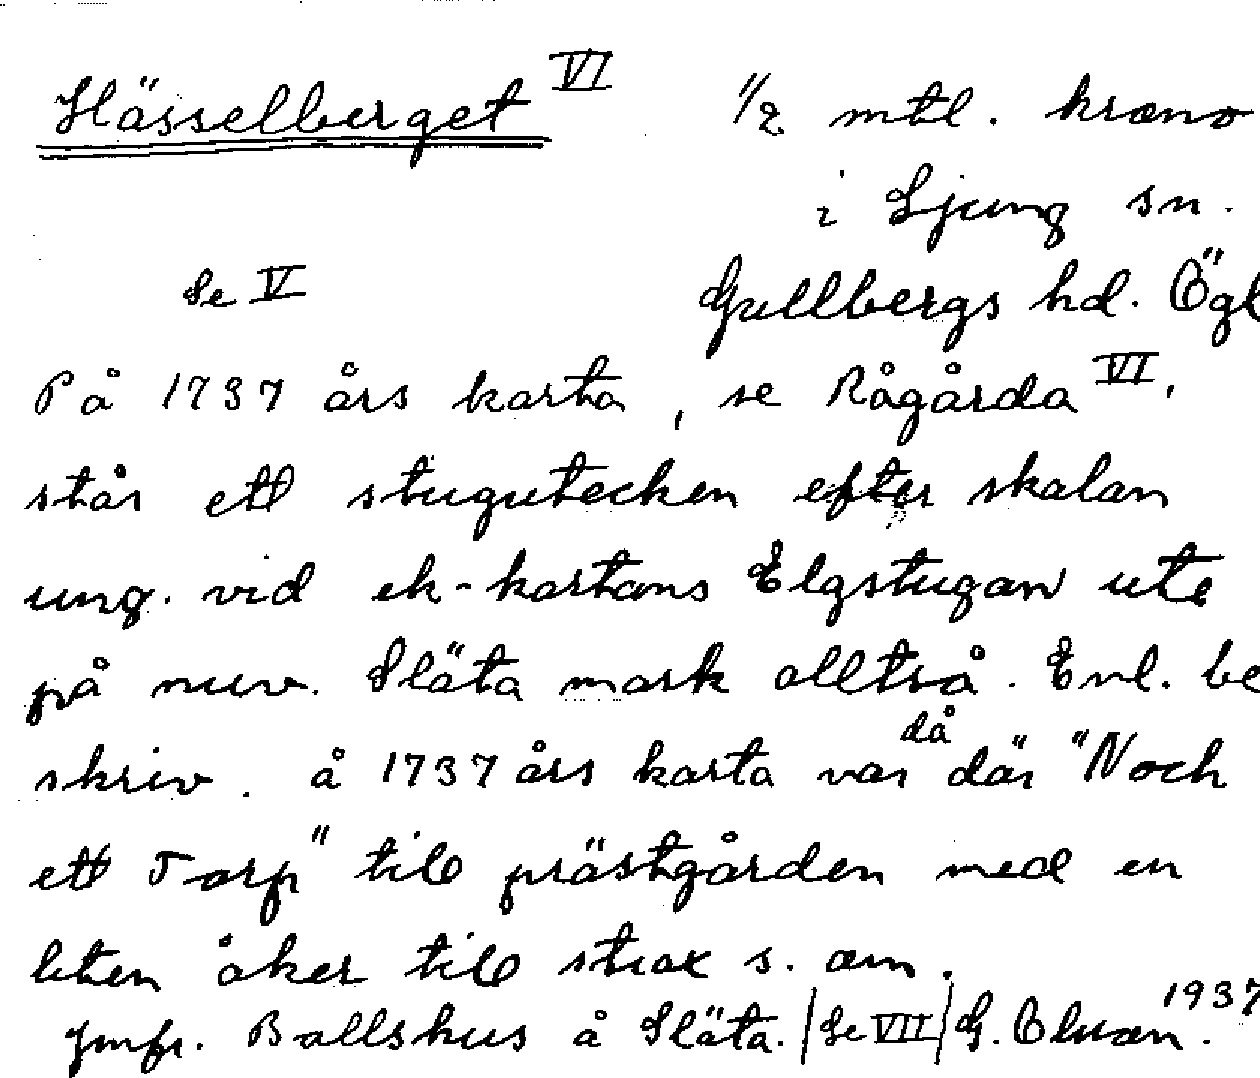 Hässelberget VI 1/2 mtl. krono
i Ljung sn.
Se V Gullbergs hd. Ögl
På 1737 års karta, se Rågårda VI,
står ett stugutecken efter skalan
ung. vid ek-kartans Elgstugan ute
på nuv. Släta mark alltså. Enl. be
skriv. å 1737 års karta var då där "Noch
ett Torp" till prästgården med en
liten åker till strax s. om.
Jmfr. Ballshus å Släta. |Se VII| G. 1937.